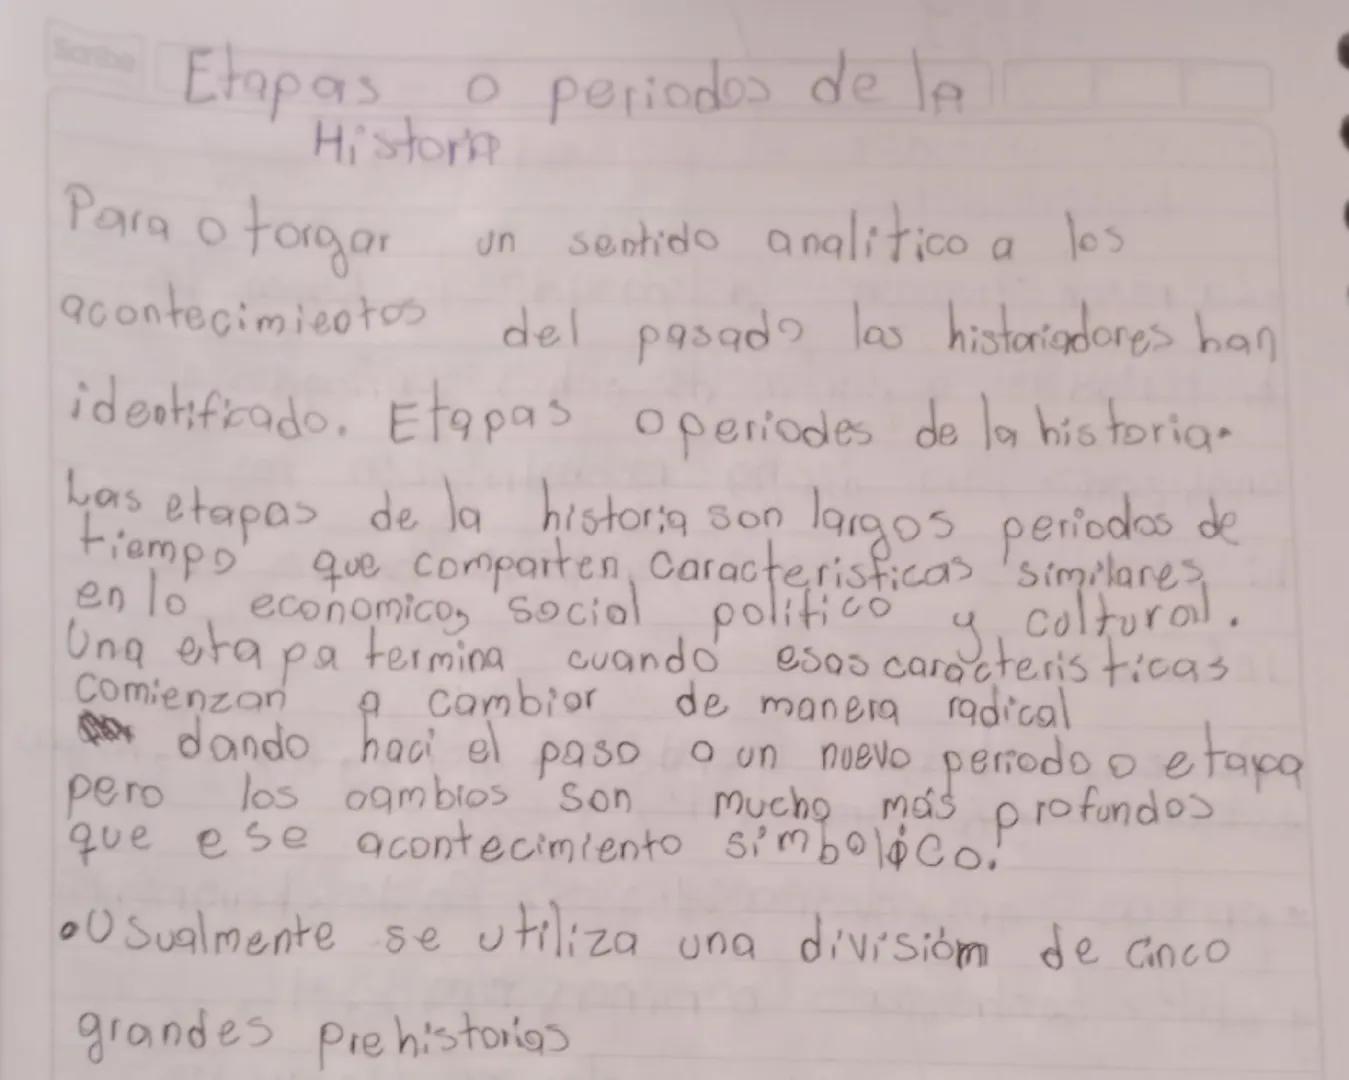 Scribe
Etapas o periodos de la
Historia
Para otorgar un sentido analitico a los
acontecimientos del pasado los historiadores han
identificado. Etapas o periodes de la historia.
Las etapas de la historia son largos periodos de
tiempo que comparten, caracteristicas similares,
en lo economico, social politico y coltural.
Una etapa termina cuando esas caracteristicas
comienzan a cambior de manera radical
dando haci el paso a un nuevo periodo o etapa
pero los cambios son mucho más profundos
que ese acontecimiento simbolico.
•Usualmente se utiliza una divisióm de cinco
grandes prehistorias